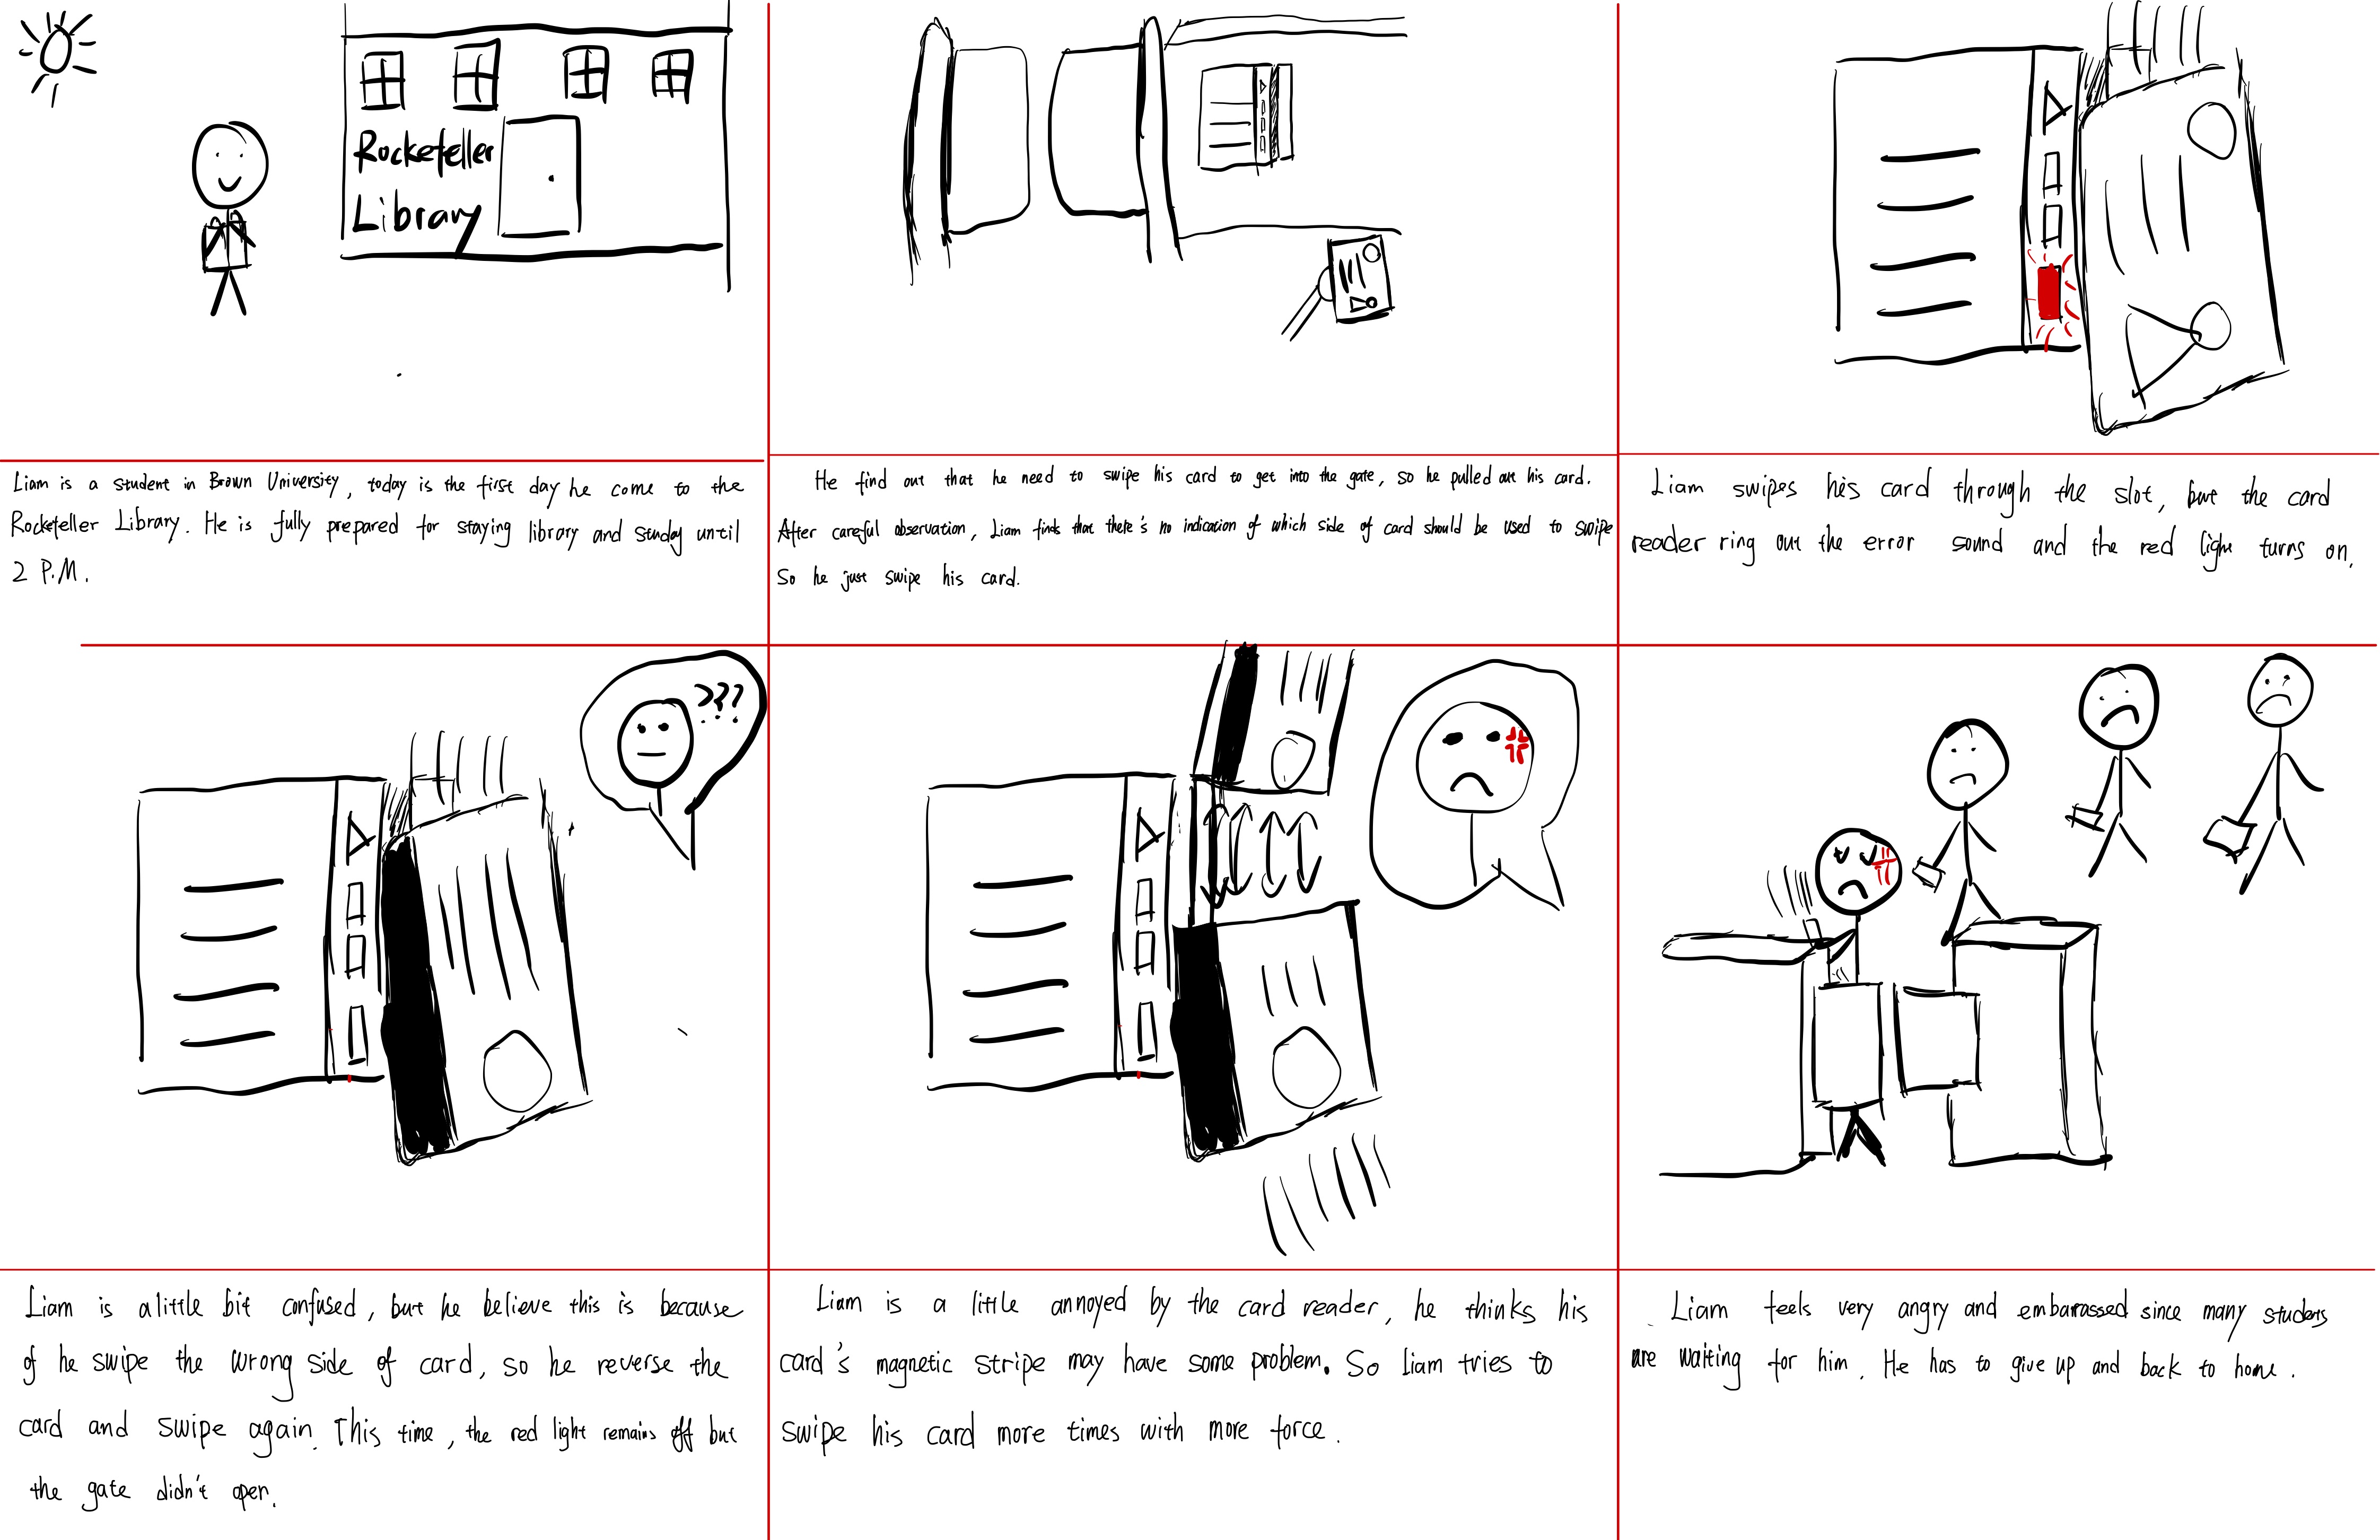 Rockefeller
Library
Liam is a student in Brown University, today is the first day he come to the
Rockefeller Library. He is fully prepared for staying library and studay until
2 P.M.
He find out that he need to swipe his card to get into the gate, so he pulled out his card.
After careful observation, Liam finds that there's no indication of which side of card should be used to swipe
So he just swipe his card.
Liam swipes his card through the slot, but the card
reader ring out the error sound and the red light turns on.
???
Liam is a little bit confused, but he believe this is because
of he swipe the wrong side of card, so he reverse the
card and swipe again. This time, the red light remains off but
the gate didn't open.
Liam is a little annoyed by the card reader, he thinks his
card's magnetic stripe may have some problem. So Liam tries to
swipe his card more times with more force.
Liam feels very angry and embarrassed since many students
are waiting for him. He has to give up and back to home.